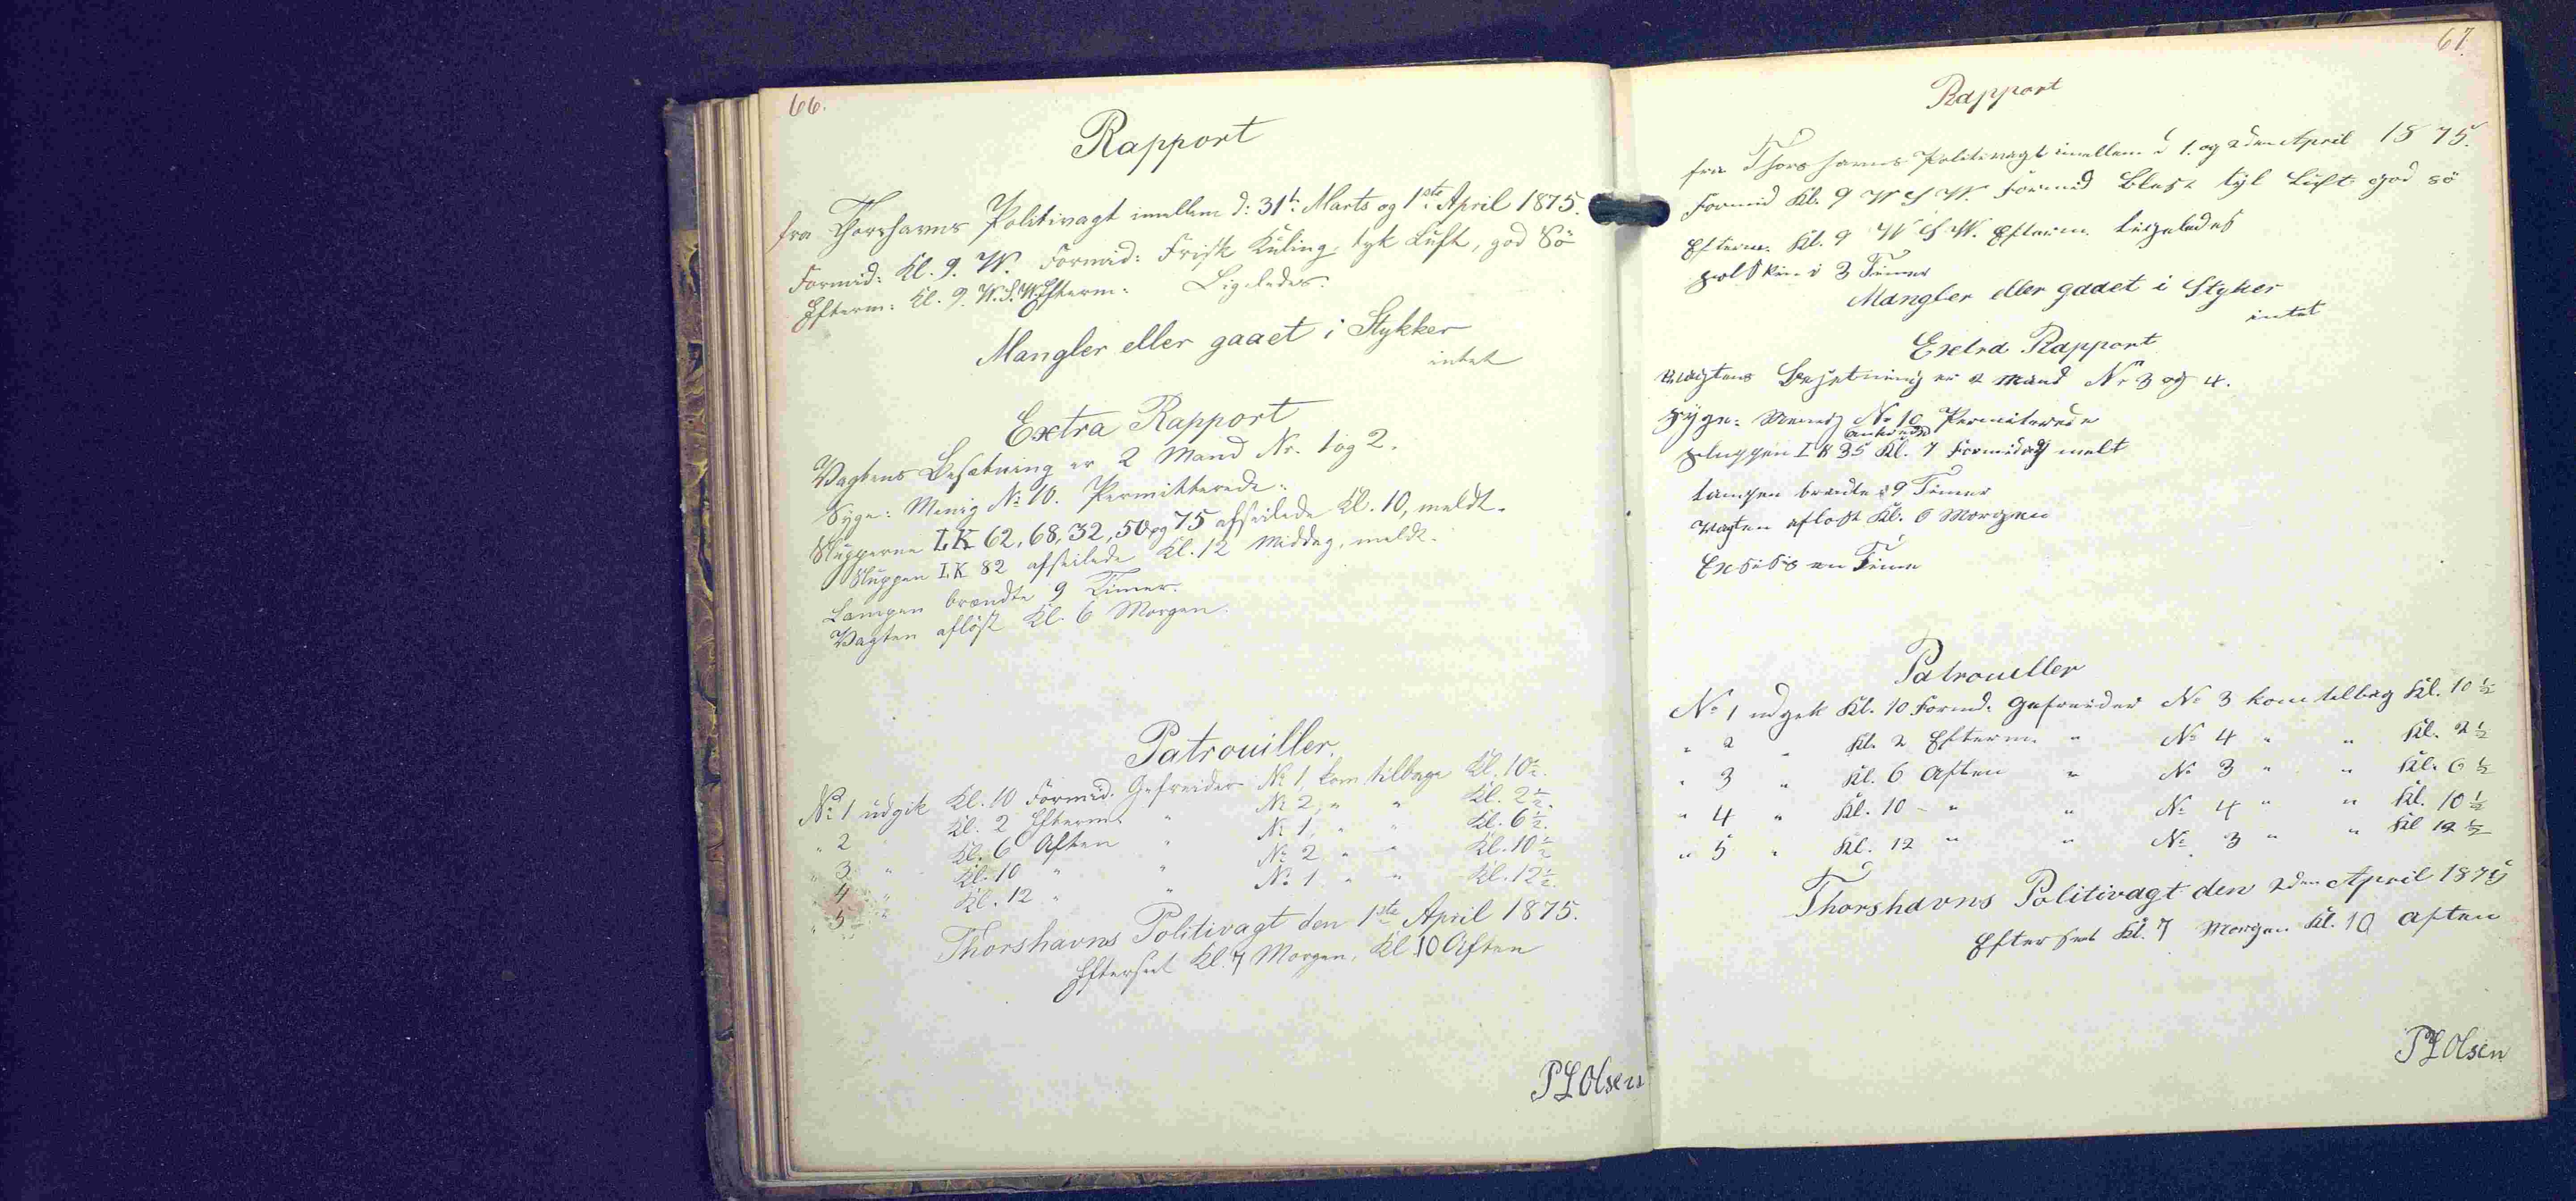 66.
Rapport
fra Thorshavns Politivagt imellem d: 31te Marts og 1ste April 1875.
Formid: Kl. 9. W. Formid: Frisk Kuling, tyk Luft, god Sö
Efterm: Kl. 9. W.S.W. Efterm: Ligeledes.
Mangler eller gaaet i Stykker
intet
Extra Rapport
Vagtens Besætning er 2 Mand Nr. 1 og 2.
Syge: Menig No 10. Permitterede:
Slupperne I.K 62, 68, 32, 50 og 75 afseilede Kl. 10, meldt.
Sluppen I.K 82 afseilede Kl. 12 Middag, meldt.
Lampen brændte 9 Timer.
Vagten aflöst Kl. 6 Morgen.
Patrouiller.
No 1 udgik Kl. 10 Formid. Gefreider No 1, kom tilbage Kl. 10½.
" 2 " Kl. 2 Efterm. " No 2, " " Kl. 2½.
" 3 " Kl. 6 Aften " No 1, " " Kl. 6½.
" 4 " Kl. 10 " " No 2 " " Kl. 10½
" 5 " Kl. 12 " " No 1 " " Kl. 12½.
Thorshavns Politivagt den 1ste April 1875.
Efterseet Kl. 7 Morgen, Kl 10 Aften
P L Olsen
67.
Rapport
fra Thorshavns Politivagt imellem d 1. og 2den April 1875.
Formid Kl. 9 W S W. Formid Blest tyk Luft god sö
Efterm. Kl. 9 W S W. Efterm. Ligeledes
Solskin i 3 Timer
Mangler eller gaaet i Styker
intet
Extra Rapport
Vagtens Besætning er 2 Mand Nr 3 og 4.
Syge: Menig No 10 Permiterede
ankrede
Sluppen I K 35 Kl. 7 Formidag melt
Lampen brændte i 9 Timer
Vagten aflöst Kl. 6 Morgen
Exsisis en Time
Patrouiller
No 1 udgik Kl. 10 Formd. Gefreider No 3 kom tilbag Kl. 10½
" 2 " Kl. 2 Efterm. " No 4 " " Kl. 2½
" 3 " Kl. 6 Aften " No 3 " " Kl. 6½
" 4 " Kl. 10 " " No 4 " " Kl. 10½
" 5 " Kl. 12 " " No 3 " " Kl 12½
Thorshavns Politivagt den 2den April 1875
Efterseet Kl. 7 Morgen Kl. 10 Aften
P L Olsen